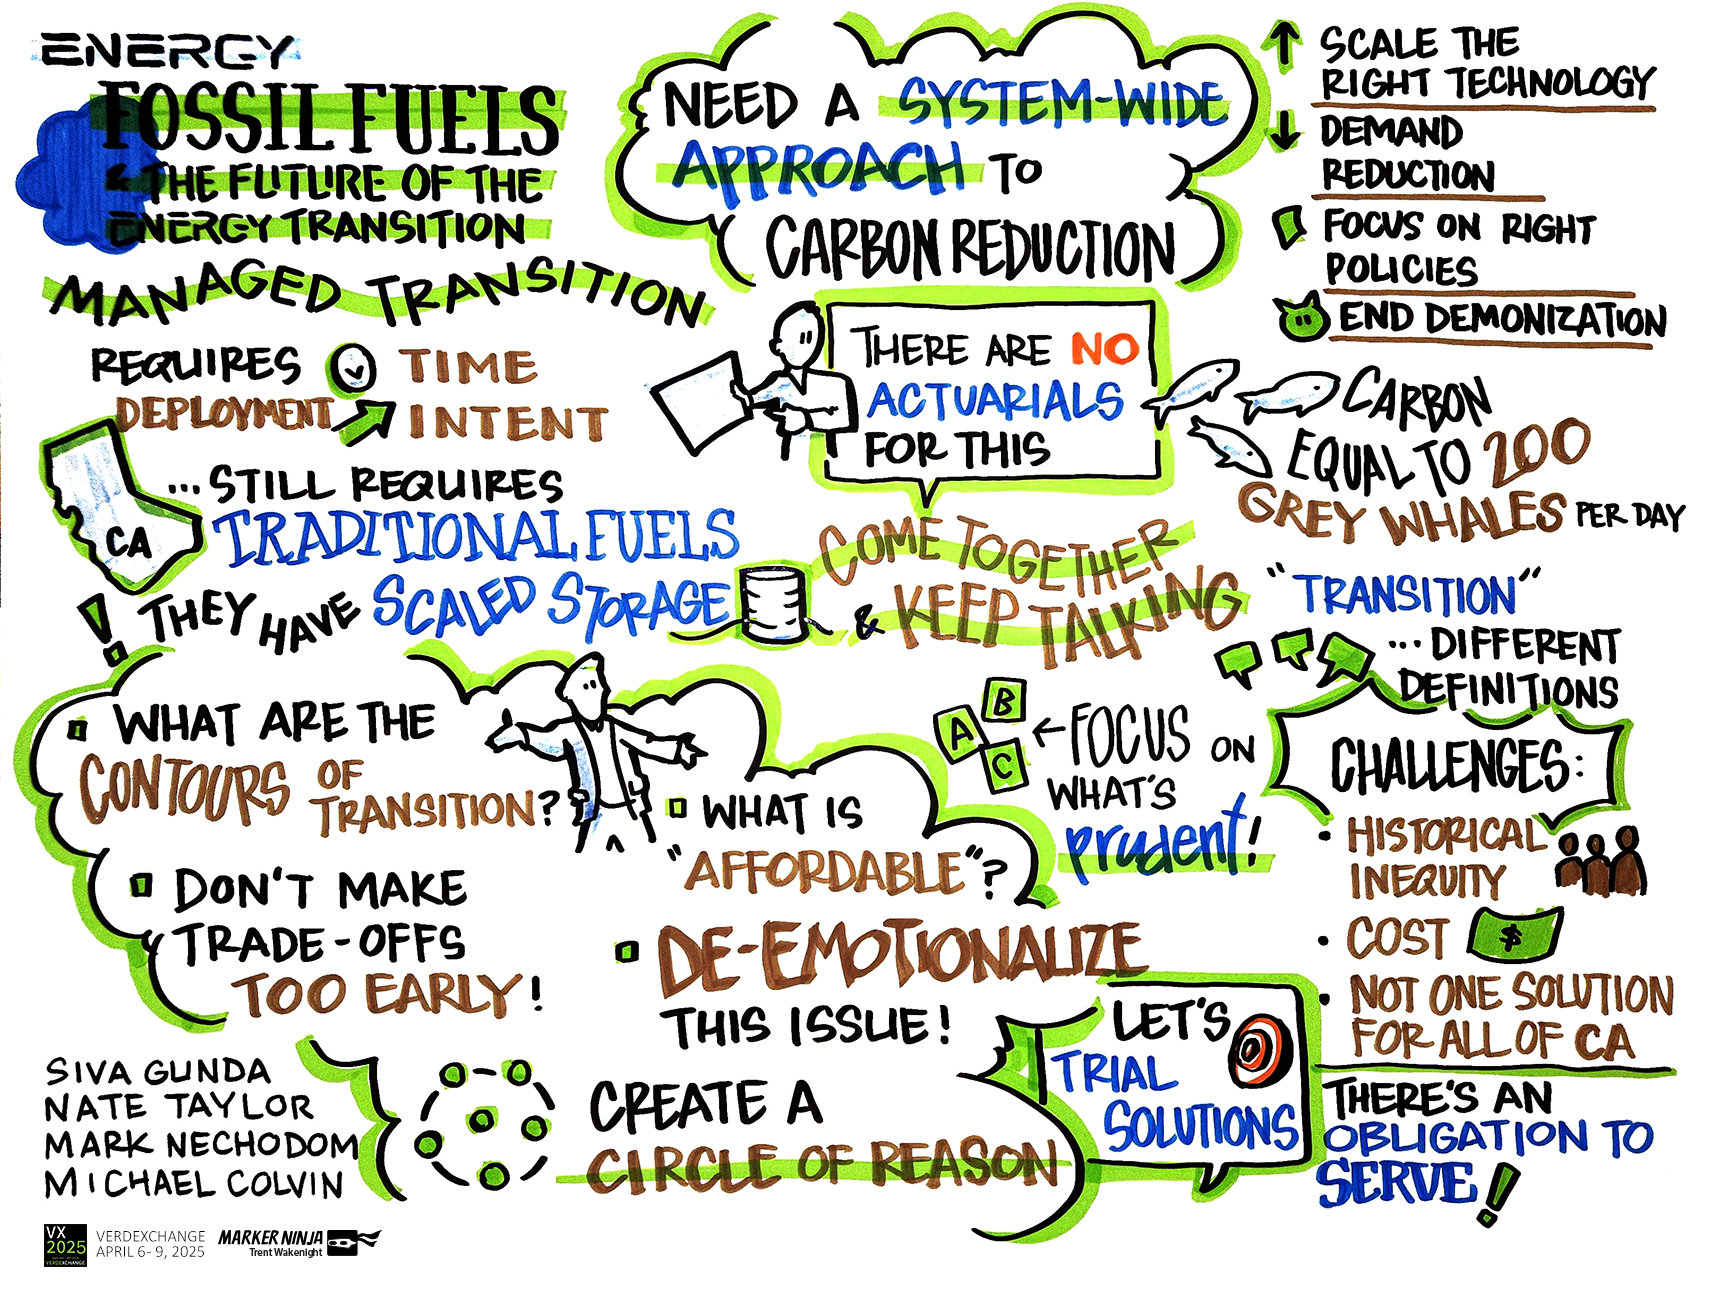 ENERGY
FOSSIL FUELS
& THE FUTURE OF THE
ENERGY TRANSITION
MANAGED TRANSITION
REQUIRES
DEPLOYMENT
TIME
INTENT
CA
...STILL REQUIRES
TRADITIONAL FUELS
! THEY HAVE SCALED STORAGE
NEED A SYSTEM-WIDE
APPROACH TO
CARBON REDUCTION
SCALE THE
RIGHT TECHNOLOGY
DEMAND
REDUCTION
FOCUS ON RIGHT
POLICIES
END DEMONIZATION
THERE ARE NO
ACTUARIALS
FOR THIS
COME TOGETHER
& KEEP TALKING
CARBON
EQUAL TO 200
GREY WHALES PER DAY
"TRANSITION"
...DIFFERENT
DEFINITIONS
WHAT ARE THE
CONTOURS OF
TRANSITION?
DON'T MAKE
TRADE-OFFS
TOO EARLY!
WHAT IS
"AFFORDABLE"?
DE-EMOTIONALIZE
THIS ISSUE!
A
B
C
←FOCUS ON
WHAT'S
prudent!
CHALLENGES:
• HISTORICAL
INEQUITY
• COST
$
• NOT ONE SOLUTION
FOR ALL OF CA
THERE'S AN
OBLIGATION TO
SERVE!
LET'S
TRIAL
SOLUTIONS
CREATE A
CIRCLE OF REASON
SIVA GUNDA
NATE TAYLOR
MARK NECHODOM
MICHAEL COLVIN
VX
2025
VERDEXCHANGE
VERDEXCHANGE
APRIL 6- 9, 2025
MARKER NINJA
Trent Wakenight